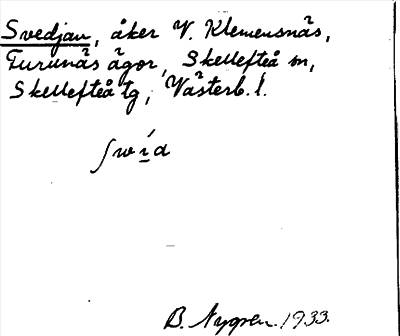 Svedjan, åker V. Klemensnäs,
Furunäs ägor, Skellefteå m,
Skellefteå tg, Västerb. l.
ʃwí̱d
B. Nygren. 1933.